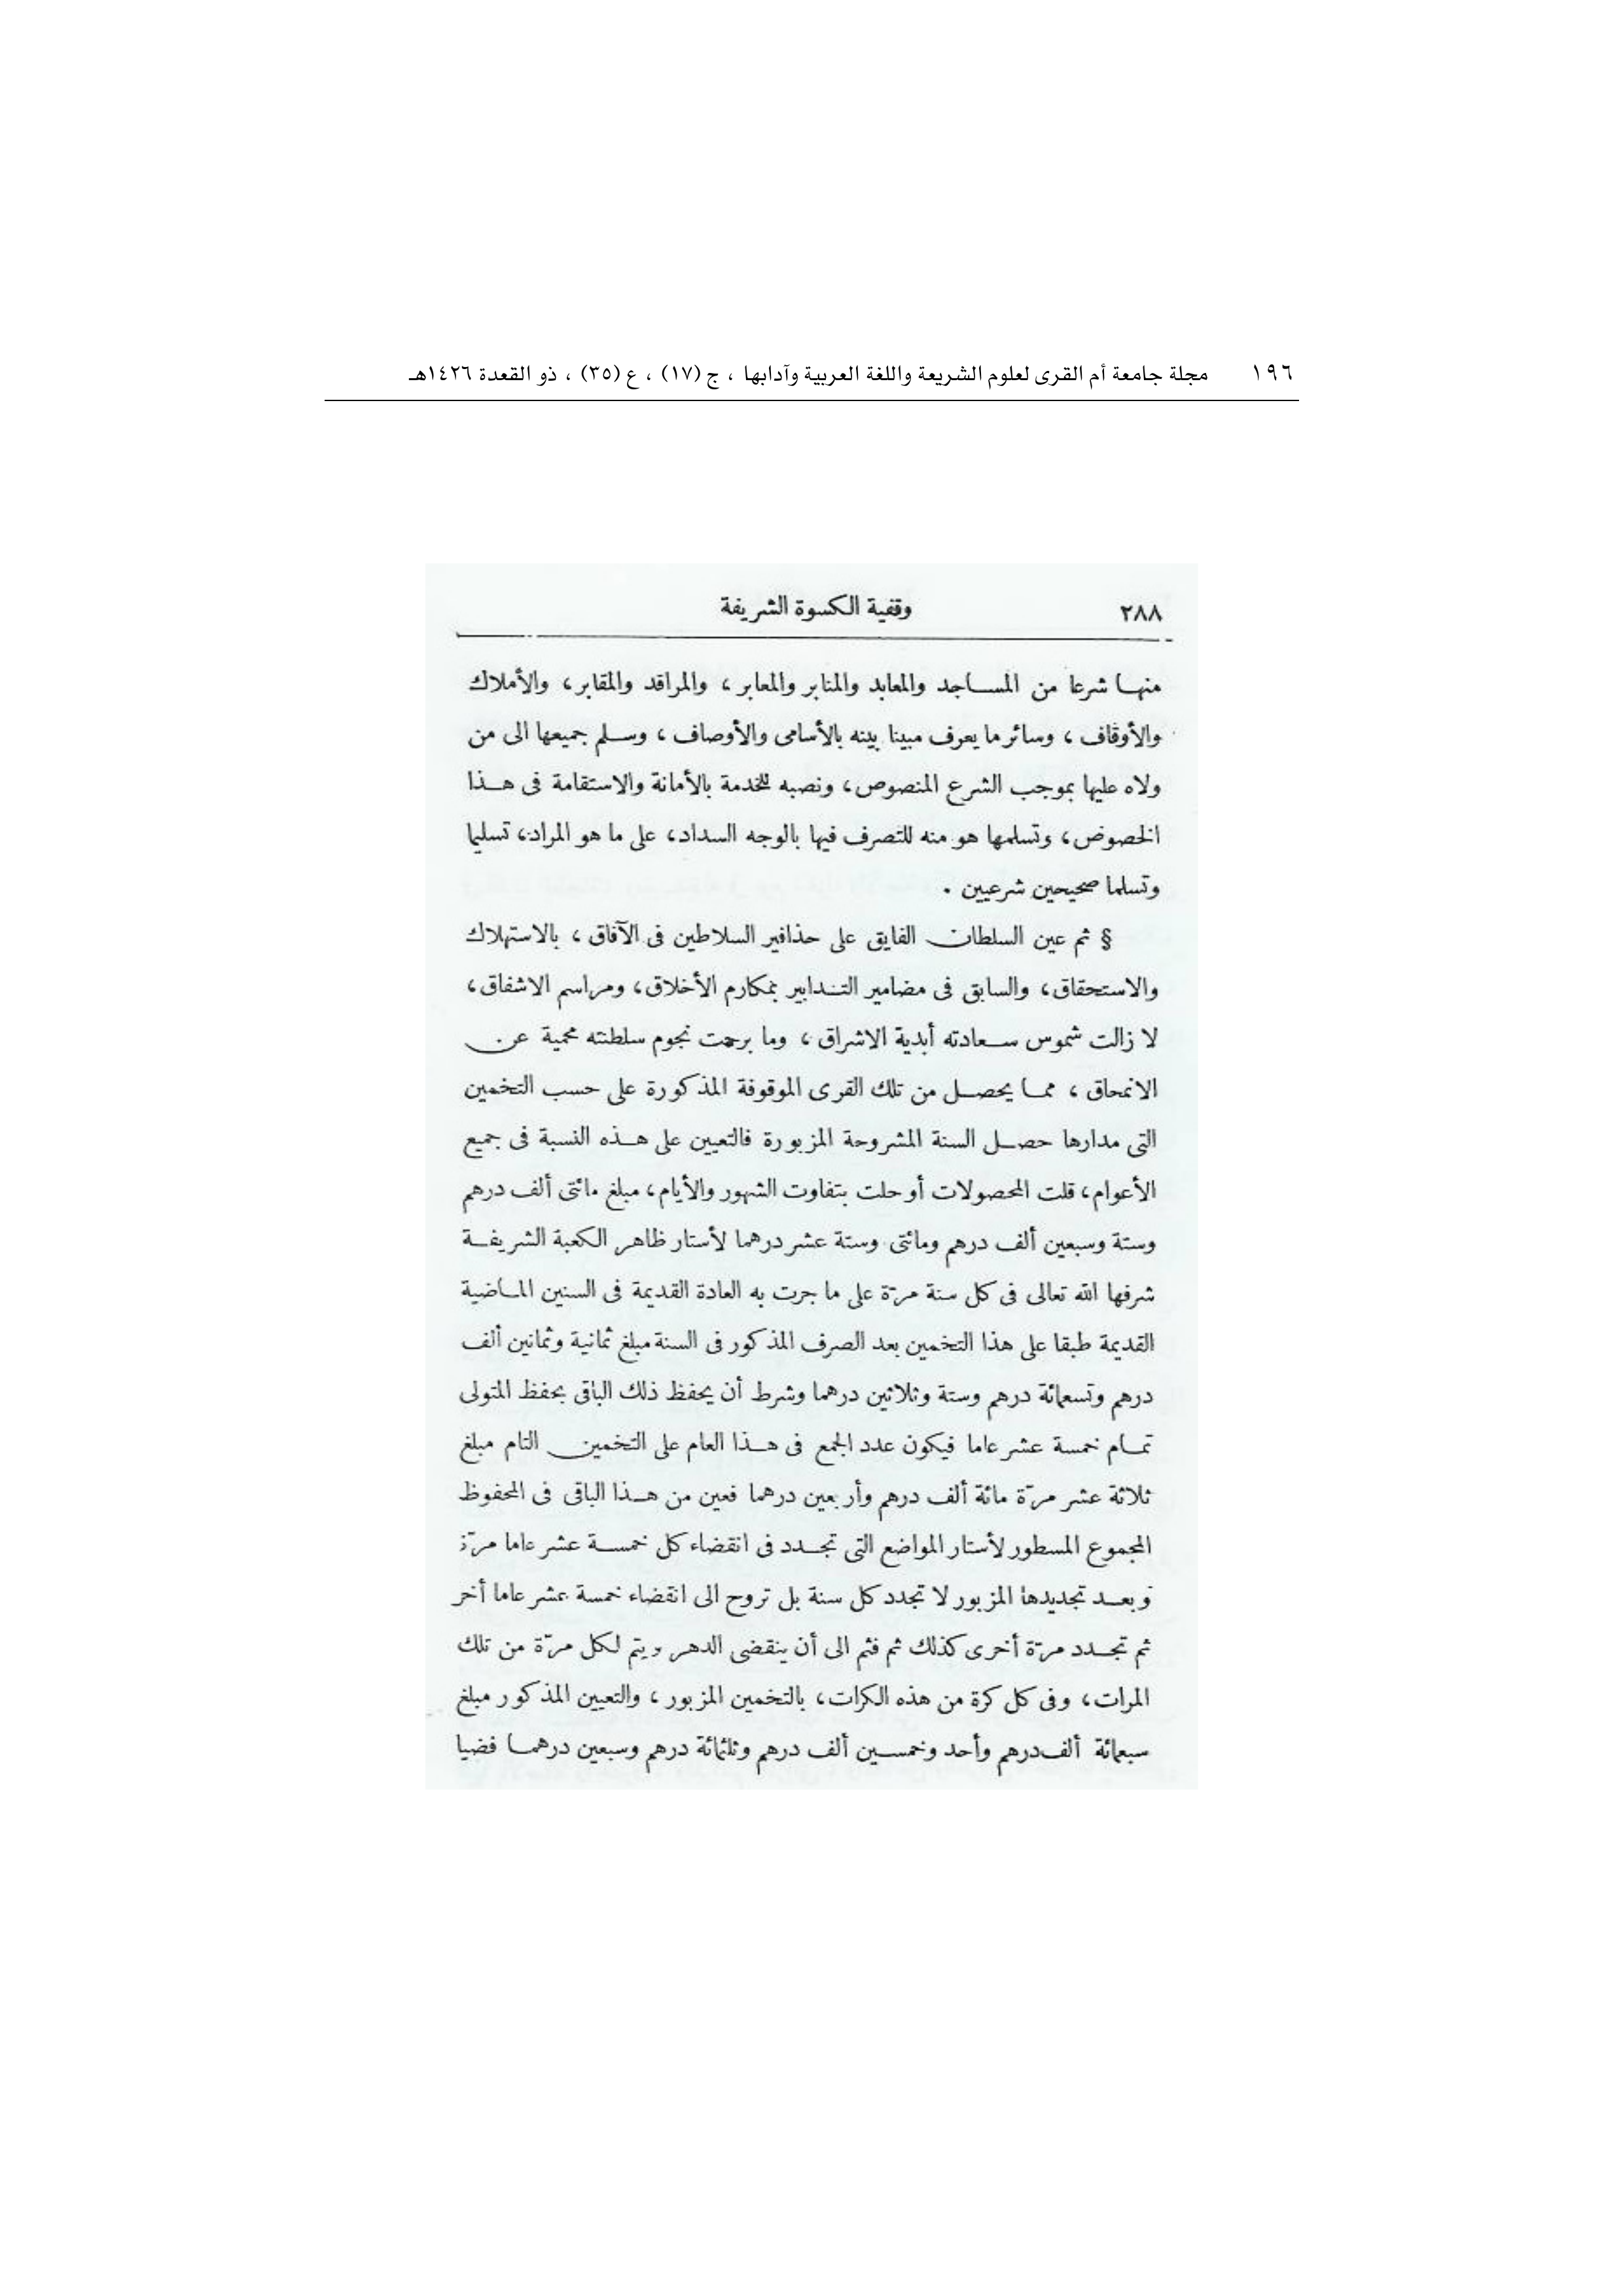 ١٩٦ مجلة جامعة أم القرى لعلوم الشريعة واللغة العربية وآدابها ، ج (١٧) ، ع (٣٥) ، ذو القعدة ١٤٢٦هـ
٢٨٨ وقفية الكسوة الشريفة
منها شرعا من المساجد والمعابد والمنابر والمعابر ، والمراقد والمقابر ، والأملاك
والأوقاف ، وسائر ما يعرف مبينا بينه بالأسامى والأوصاف ، وسلم جميعها الى من
ولاه عليها بموجب الشرع المنصوص ، ونصبه للخدمة بالأمانة والاستقامة فى هذا
الخصوص ، وتسلمها هو منه للتصرف فيها بالوجه السداد ، على ما هو المراد ، تسليما
وتسلما صحيحين شرعيين .
§ ثم عين السلطان الفايق على حذافير السلاطين فى الآفاق ، بالاستهلاك
والاستحقاق ، والسابق فى مضامير التدابير بمكارم الأخلاق ، ومراسم الاشفاق ،
لا زالت شموس سعادته أبدية الاشراق ، وما برحت نجوم سلطنته محمية عن
الانمحاق ، مما يحصل من تلك القرى الموقوفة المذكورة على حسب التخمين
التى مدارها حصل السنة المشروحة المزبورة فالتعيين على هذه النسبة فى جميع
الأعوام ، قلت المحصولات أو حلت بتفاوت الشهور والأيام ، مبلغ مائتى ألف درهم
وستة وسبعين ألف درهم ومائتى وستة عشر درهما لأستار ظاهر الكعبة الشريفة
شرفها الله تعالى فى كل سنة مرّة على ما جرت به العادة القديمة فى السنين الماضية
القديمة طبقا على هذا التخمين بعد الصرف المذكور فى السنة مبلغ ثمانية وثمانين ألف
درهم وتسعمائة درهم وستة وثلاثين درهما وشرط أن يحفظ ذلك الباقى بحفظ المتولى
تمام خمسة عشر عاما فيكون عدد الجمع فى هذا العام على التخمين التام مبلغ
ثلاثة عشر مرّة مائة ألف درهم وأربعين درهما فعين من هذا الباقى فى المحفوظ
المجموع المسطور لأستار المواضع التى تجدد فى انقضاء كل خمسة عشر عاما مرّة
وبعد تجديدها المزبور لا تجدد كل سنة بل تروح الى انقضاء خمسة عشر عاما أخر
ثم تجدد مرّة أخرى كذلك ثم فثم الى أن ينقضى الدهر ويتم لكل مرّة من تلك
المرات ، وفى كل كرة من هذه الكرات ، بالتخمين المزبور ، والتعيين المذكور مبلغ
سبعمائة ألف درهم وأحد وخمسين ألف درهم وثلثمائة درهم وسبعين درهما فضيا